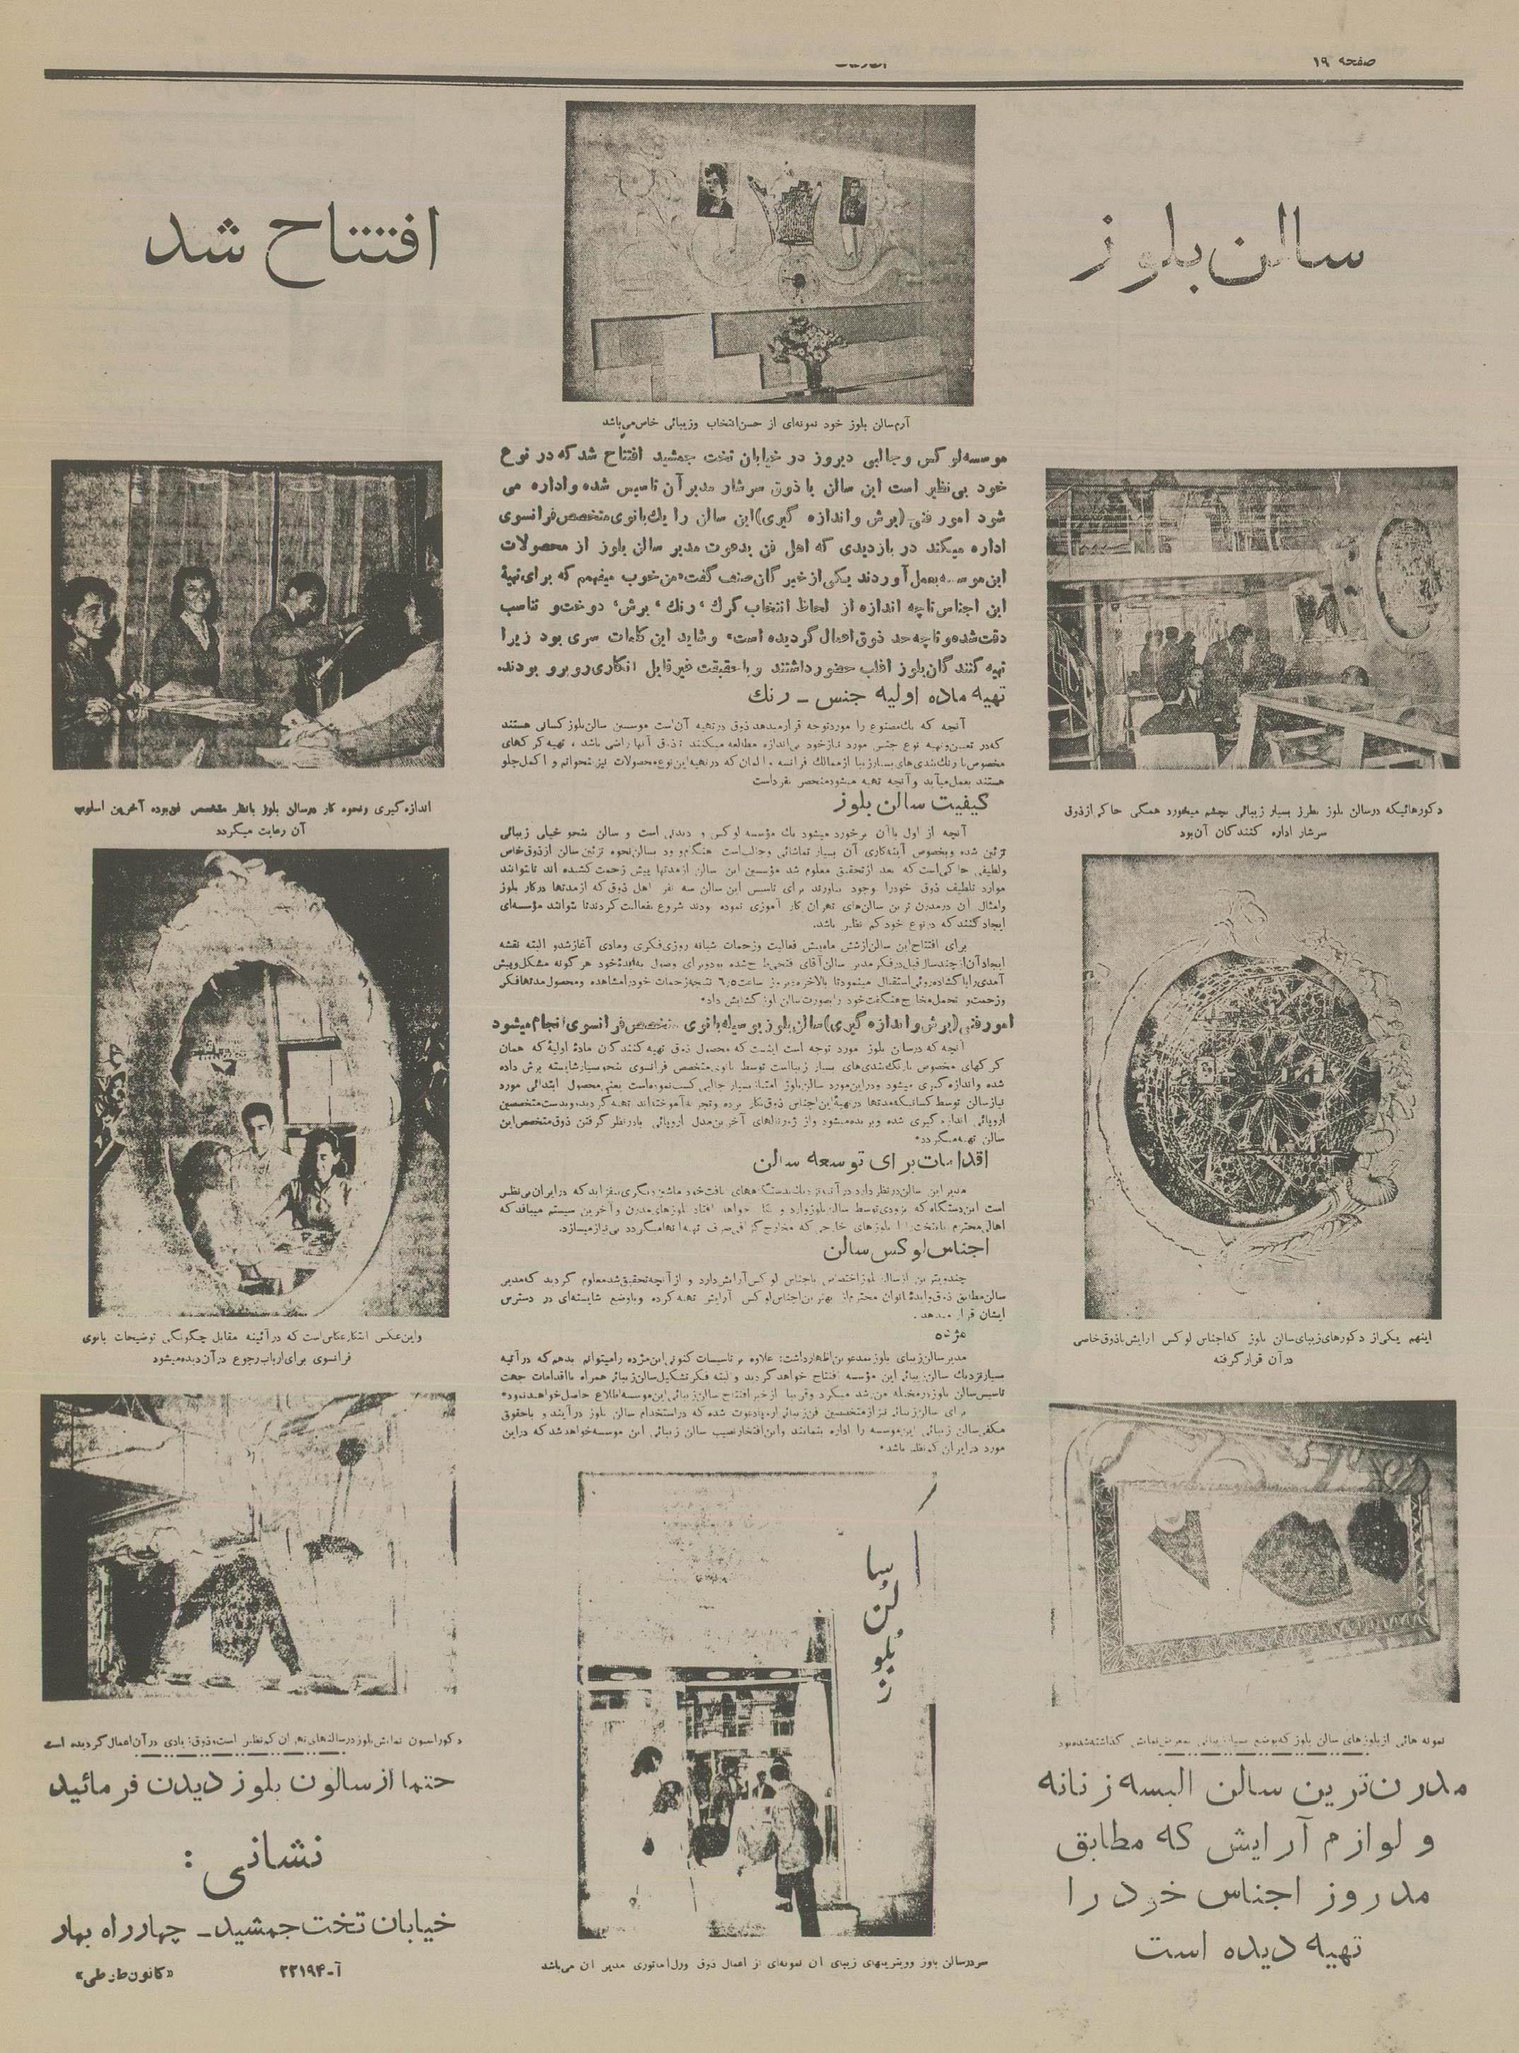 صفحه ۱۹
سالن بلوز
افتتاح شد
آرم سالن بلوز خود نمونه‌ای از حسن انتخاب وزیبائی خاص می‌باشد
موسسه لوکس وجالبی دیروز در خیابان تخت جمشید افتتاح شد که در نوع
خود بی‌نظیر است این سالن با ذوق سرشار مدیر آن تاسیس شده واداره می
شود امور فنی (برش واندازه گیری) این سالن را یك بانوی متخصص فرانسوی
اداره میکند در بازدیدی که اهل فن بدعوت مدیر سالن بلوز از محصولات
این موسسه بعمل آوردند یکی از خبرگان صنف گفت «من خوب میفهمم که برای تهیهٔ
این اجناس تاچه اندازه از لحاظ انتخاب کرك، رنك، برش، دوخت و تناسب
دقت شده و تاچه حد ذوق اعمال گردیده است» وشاید این کلمات سری بود زیرا
تهیه کنندگان بلوز اغلب حضور داشتند و با حقیقت غیرقابل انکاری روبرو بودند.
تهیه ماده اولیه جنس ـ رنك
آنچه که یك مصنوع را مورد توجه قرار میدهد ذوق در تهیه آن است موسسین سالن بلوز کسانی هستند
که در تعیین و تهیه نوع جنس مورد نیاز خود بی‌اندازه مطالعه میکنند تا ذوق آنها راضی باشد، تهیه کرکهای
مخصوص با رنك‌بندی‌های بسیار زیبا از ممالك فرانسه و آلمان که در تهیه این نوع محصولات
هستند بعمل میآید و آنچه تهیه میشود منحصر بفرد است
کیفیت سالن بلوز
آنچه از اول با آن برخورد میشود یك مؤسسه لوکس و دیدنی است و سالن بنحو خیلی زیبائی
تزئین شده وبخصوص آینه‌کاری آن بسیار تماشائی وجالب است هنگام ورود بسالن نحوه تزئین سالن از ذوق خاص
ولطیفی حاکی است که بعد از تحقیق معلوم شد مؤسسین این سالن از مدتها پیش زحمت کشیده اند تا بتوانند
موارد تلطیف ذوق خود را بوجود بیاورند برای تاسیس این سالن سه نفر اهل ذوق که از مدتها در کار بلوز
وامثال آن در مدرن ترین سالن‌های تهران کار آموزی نموده بودند شروع بفعالیت کردند تا بتوانند مؤسسه‌ای
ایجاد کنند که در نوع خود کم نظیر باشد.
برای افتتاح این سالن از شش ماه پیش فعالیت وزحمات شبانه روزی فکری ومادی آغاز شد و البته نقشه
ایجاد آن از چند سال قبل در فکر مدیر سالن آقای
آمدی را با گشاده‌روئی استقبال مینمود تا بالاخره دیروز ساعت ۶٫۵ نتیجه زحمات خود را مشاهده ومحصول مدتها فکر
وزحمت و تحمل مخارج هنگفت خود را بصورت سالن بلوز گشایش داد.
امور فنی (برش واندازه گیری) سالن بلوز بوسیله بانوی متخصص فرانسوی انجام میشود
آنچه که در سالن بلوز مورد توجه است اینست که محصول ذوق تهیه کنندگان مادهٔ اولیه که همان
کرکهای مخصوص با رنك‌بندی‌های بسیار زیباست توسط بانوی متخصص فرانسوی بنحو بسیار شایسته برش داده
شده واندازه گیری میشود ودر این مورد سالن بلوز امتیاز بسیار جالبی کسب نموده است یعنی محصول ابتدائی مورد
نیاز سالن توسط کسانیکه مدتها در تهیهٔ این اجناس ذوق بکار برده وتجربه آموخته‌اند تهیه گردیده وبدست متخصصین
اروپائی اندازه گیری شده وبریده میشود واز ژورنالهای آخرین مدل اروپائی با در نظر گرفتن ذوق متخصص این
سالن تهیه میگردد.
اقدامات برای توسعه سالن
مدیر این سالن در نظر دارد در آینده نزدیك
است این دستگاه که بزودی توسط سالن بلوز وارد و بکار خواهد افتاد بلوزهای مدرن و آخرین سیستم میبافد که
اهالی محترم پایتخت را از بلوزهای خارجی که مخارج گزافی صرف تهیه آنها میگردد بی‌نیاز میسازد.
اجناس لوکس سالن
چند ویترین از سالن بلوز اختصاص باجناس لوکس آرایش دارد و از آنچه تحقیق شد معلوم گردید که مدیر
سالن مطابق ذوق وایدهٔ بانوان محترم از بهترین اجناس لوکس آرایش تهیه کرده وباوضع شایسته‌ای در دسترس
ایشان قرار میدهد.
مژده
مدیر سالن زیبای بلوز بمدعوین اظهار داشت: علاوه بر تاسیسات کنونی این مژده را میتوانم بدهم که در آتیه
بسیار نزدیك سالن زیبائی این مؤسسه افتتاح خواهد گردید و البته فکر تشکیل سالن زیبائی همراه با اقدامات جهت
تاسیس سالن بلوز در مخیله من رشد میکرد وقریباً از خبر افتتاح سالن زیبائی این موسسه اطلاع حاصل خواهید نمود.
برای سالن زیبائی نیز از متخصصین فن زیبائی اروپا دعوت شده که در استخدام سالن بلوز در آیند و با حقوق
مکفی سالن زیبائی این موسسه را اداره بنمایند واین افتخار نصیب سالن زیبائی این موسسه خواهد شد که در این
مورد در ایران کم نظیر باشد.
اندازه گیری ونحوه کار درسالن بلوز بانظر متخصص فن بوده آخرین اسلوب
آن رعایت میگردد
دکورهائیکه درسالن بلوز بطرز بسیار زیبائی بچشم میخورد همگی حاکی از ذوق
سرشار اداره کنندگان آن بود
واین عکس ابتکار عکاس است که در آئینه مقابل چگونگی توضیحات بانوی
فرانسوی برای ارباب رجوع در آن دیده میشود
اینهم یکی از دکورهای زیبای سالن بلوز که اجناس لوکس آرایش با ذوق خاصی
در آن قرار گرفته
سالن بلوز
دکوراسیون نمایش بلوز در سالنهای تهران کم نظیر است، ذوق زیادی در آن اعمال گردیده است
نمونه هائی از بلوزهای سالن بلوز که بوضع بسیار زیبائی بمعرض نمایش گذاشته شده بود
حتما از سالون بلوز دیدن فرمائید
نشانی :
خیابان تخت جمشید ـ چهارراه بهار
آ-۲۲۱۹۴
مدرن‌ترین سالن البسه زنانه
و لوازم آرایش که مطابق
مد روز اجناس خود را
تهیه دیده است
سردر سالن بلوز وویترینهای زیبای آن نمونه‌ای از اعمال ذوق مدیر آن می‌باشد